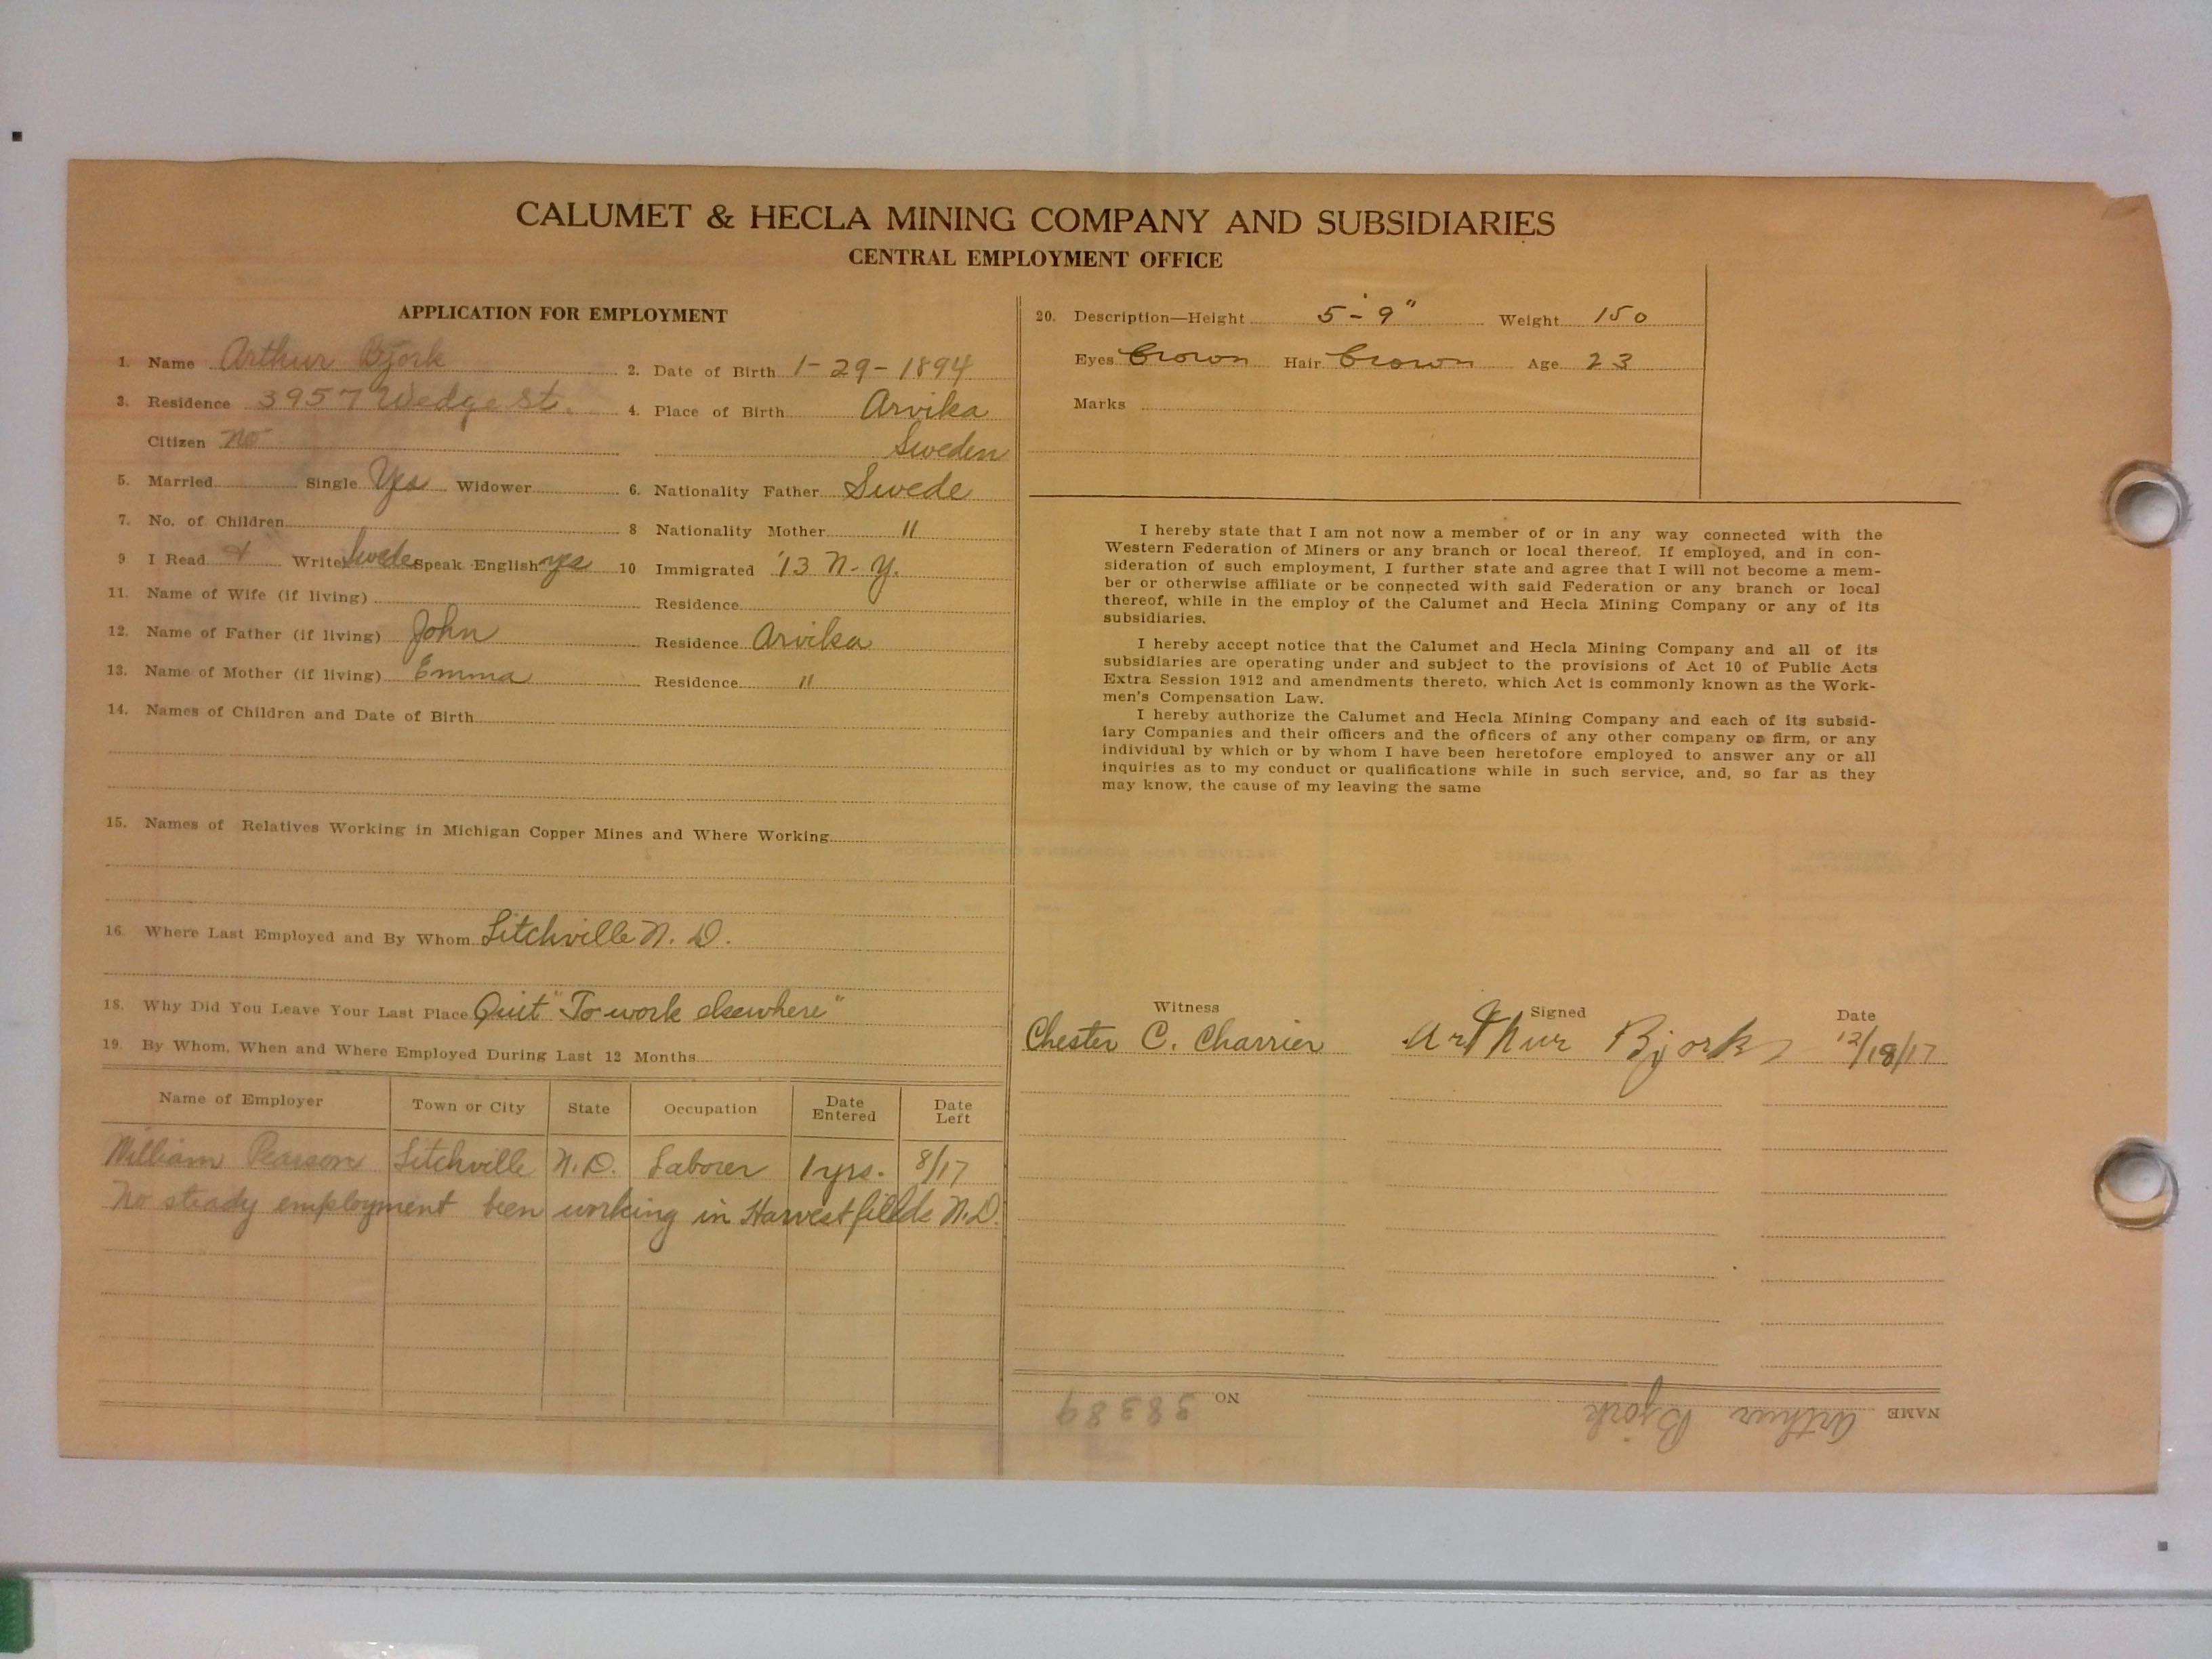 CALUMET & HECLA MINING COMPANY AND SUBSIDIARIES
CENTRAL EMPLOYMENT OFFICE
APPLICATION FOR EMPLOYMENT
1. Name Arthur Bjork 2. Date of Birth 1-29-1894
3. Residence 3957 Wedge St. 4. Place of Birth Arvika
Citizen No Sweden
5. Married Single Yes Widower 6. Nationality Father Swede
7. No. of Children 8 Nationality Mother "
9 I Read & Write Swede Speak English yes 10 Immigrated '13 N. Y.
11. Name of Wife (if living) Residence
12. Name of Father (if living) John Residence Arvika
13. Name of Mother (if living) Emma Residence "
14. Names of Children and Date of Birth
15. Names of Relatives Working in Michigan Copper Mines and Where Working
16. Where Last Employed and By Whom Litchville N. D.
18. Why Did You Leave Your Last Place Quit "To work elsewhere"
19. By Whom, When and Where Employed During Last 12 Months
Name of Employer Town or City State Occupation Date Entered Date Left
William Pearson Litchville N.D. Laborer 1 yrs. 8/17
No steady employment been working in Harvest fields N.D.
20. Description—Height 5'-9" Weight 150
Eyes Brown Hair Brown Age 23
Marks
I hereby state that I am not now a member of or in any way connected with the
Western Federation of Miners or any branch or local thereof. If employed, and in con-
sideration of such employment, I further state and agree that I will not become a mem-
ber or otherwise affiliate or be connected with said Federation or any branch or local
thereof, while in the employ of the Calumet and Hecla Mining Company or any of its
subsidiaries.
I hereby accept notice that the Calumet and Hecla Mining Company and all of its
subsidiaries are operating under and subject to the provisions of Act 10 of Public Acts
Extra Session 1912 and amendments thereto, which Act is commonly known as the Work-
men's Compensation Law.
I hereby authorize the Calumet and Hecla Mining Company and each of its subsid-
iary Companies and their officers and the officers of any other company or firm, or any
individual by which or by whom I have been heretofore employed to answer any or all
inquiries as to my conduct or qualifications while in such service, and, so far as they
may know, the cause of my leaving the same
Witness Signed Date
Chester C. Charrier Arthur Bjork 12/18/17
NAME Arthur Bjork NO 38389